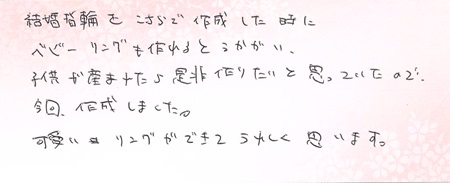 結婚指輪をこちらで作成した時に
ベビーリングも作れるとうかがい、
子供が産まれたら是非作りたいと思っていたので、
今回、作成しました。
可愛いリングができてうれしく思います。